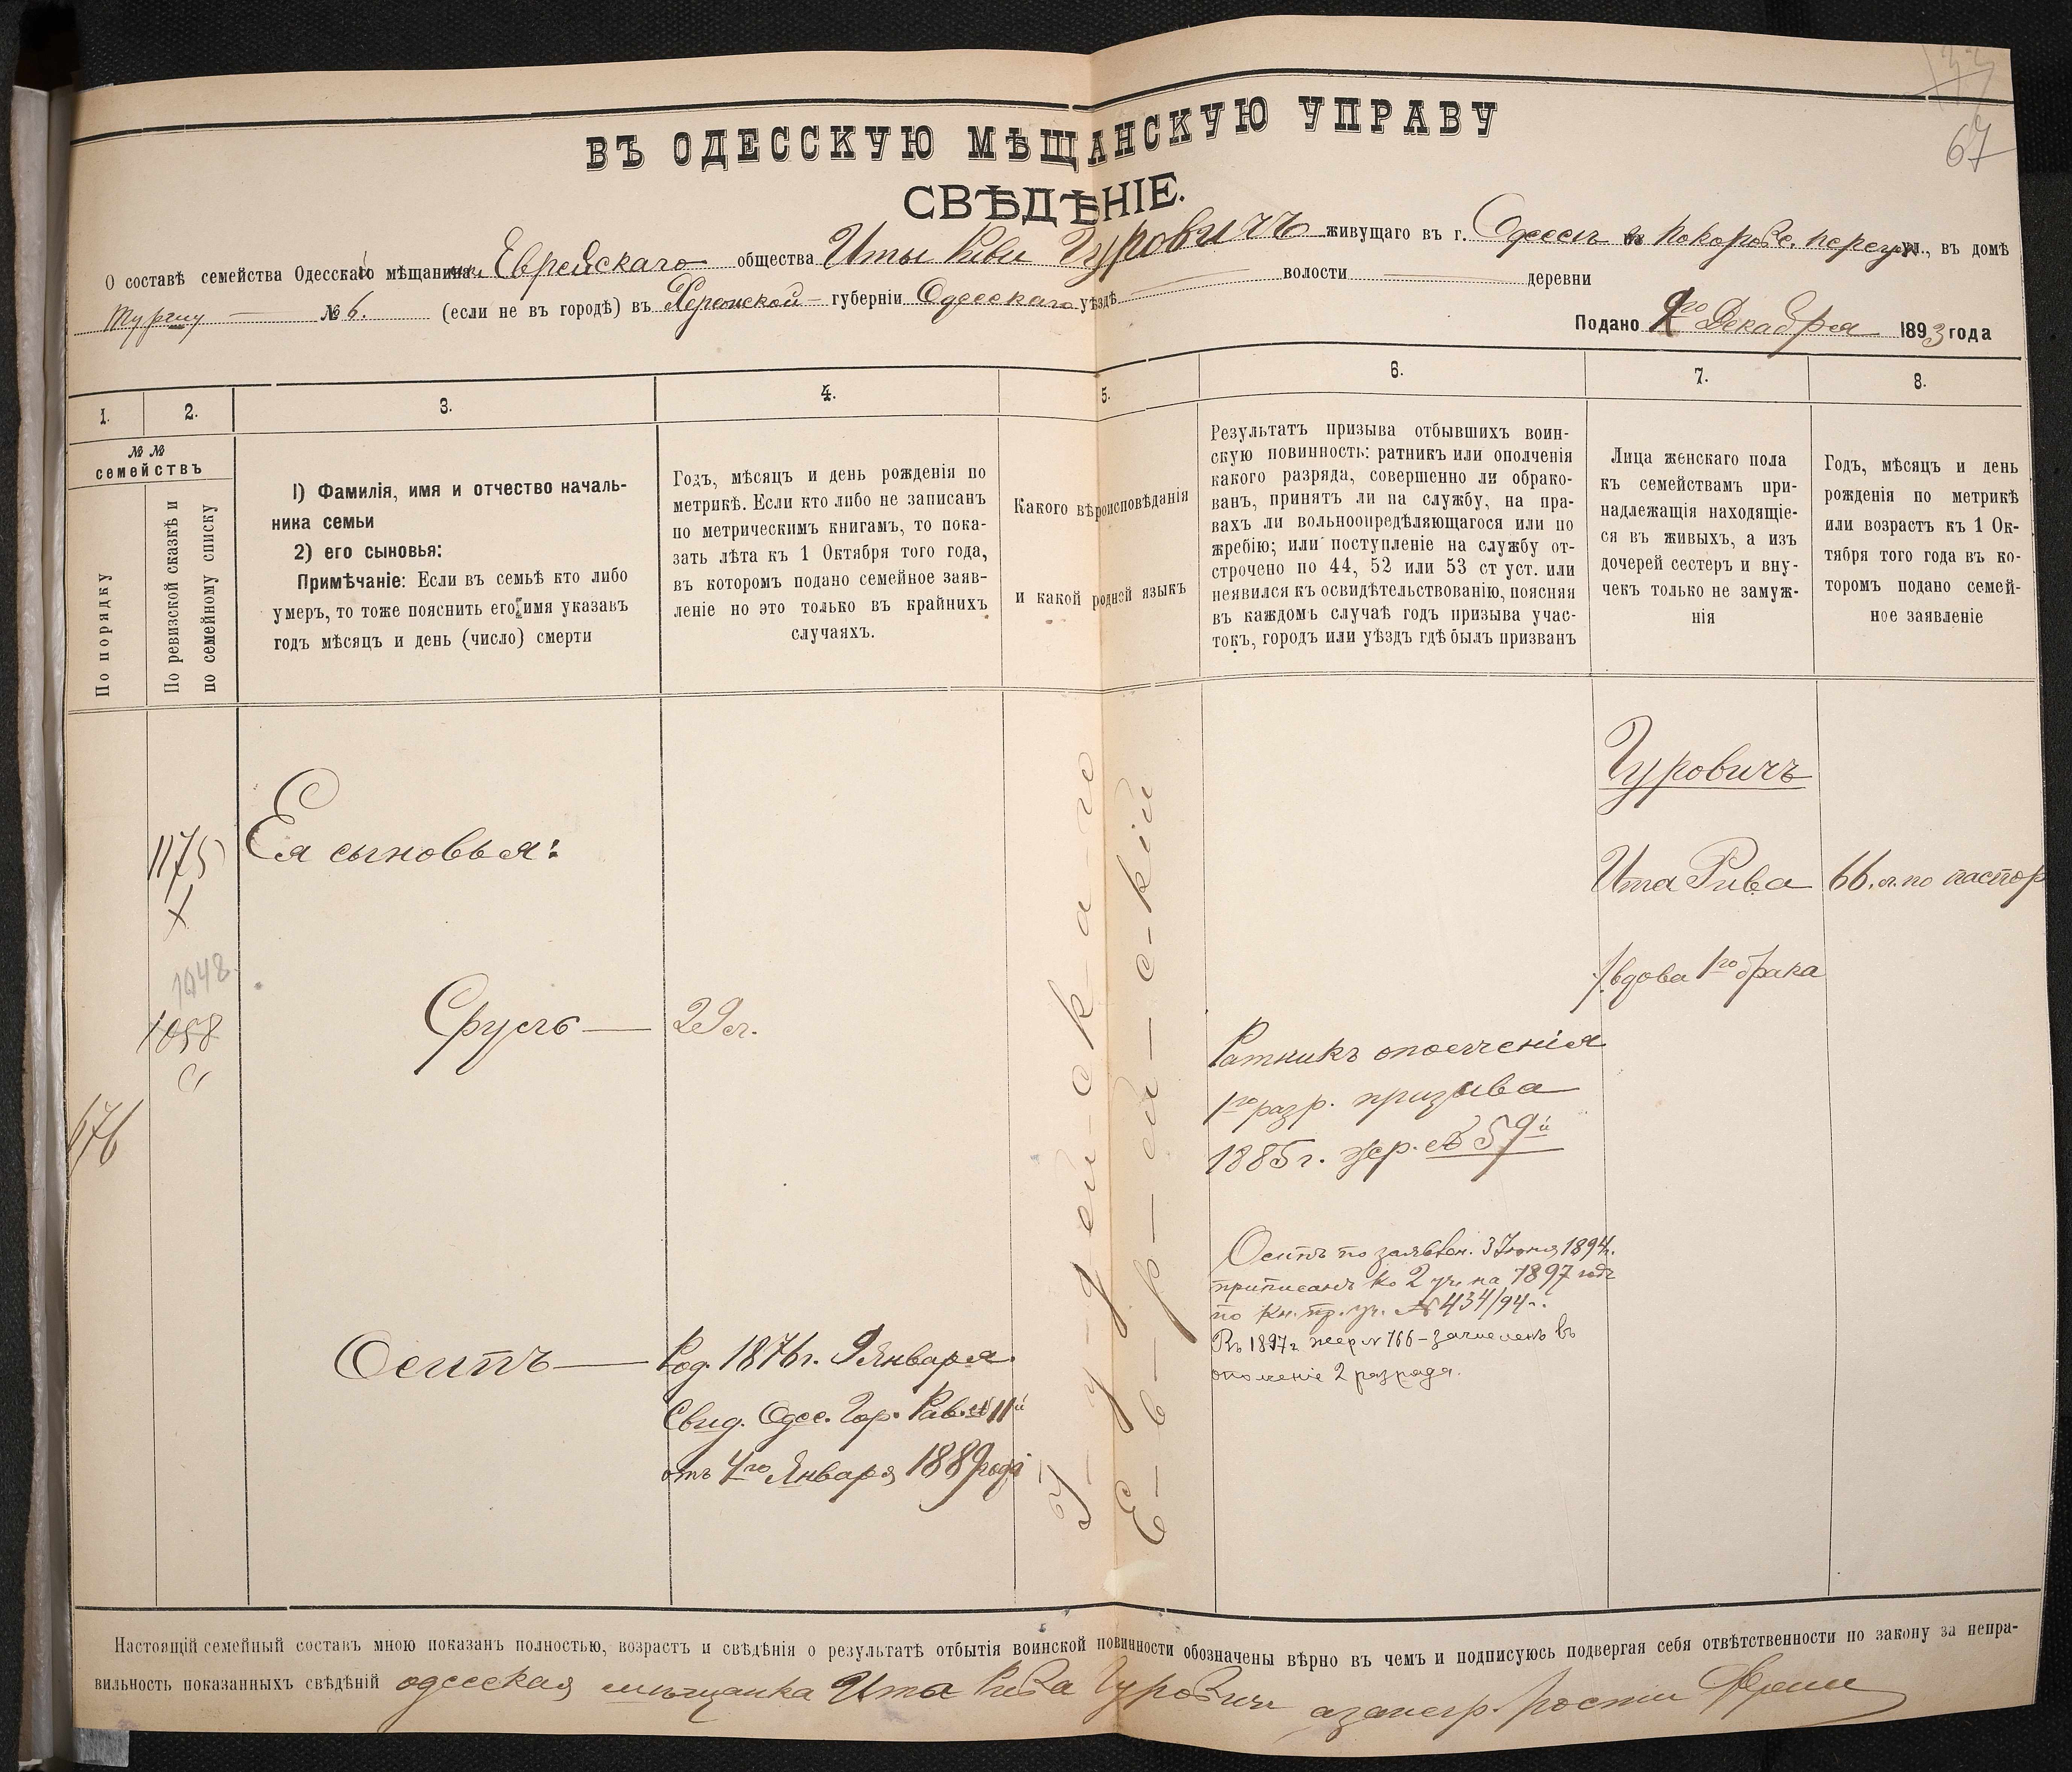 67
ВЪ ОДЕССКУЮ МѢЩАНСКУЮ УПРАВУ
СВѢДѢНІЕ.
О составѣ семейства Одесскаго мѣщанина Еврейскаго общества Иты Риви Гуровичъ живущаго въ г. Одессѣ въ Покровс. переул., въ домѣ
№ 6. (если не въ городѣ) въ Херсонской губерніи Одесскаго уѣздѣ волости деревни
Подано Декабря 1893 года
1. 2. 3. 4. 5. 6. 7. 8.
№ №
семействъ
По порядку
По ревизской сказкѣ и
по семейному списку
1) Фамилія, имя и отчество началь-
ника семьи
2) его сыновья:
Примѣчаніе: Если въ семьѣ кто либо
умеръ, то тоже пояснить его имя указавъ
годъ мѣсяцъ и день (число) смерти
Годъ, мѣсяцъ и день рожденія по
метрикѣ. Если кто либо не записанъ
по метрическимъ книгамъ, то пока-
зать лѣта къ 1 Октября того года,
въ которомъ подано семейное заяв-
леніе но это только въ крайнихъ
случаяхъ.
Какого вѣроисповѣданія
и какой родной языкъ
Результатъ призыва отбывшихъ воин-
скую повинность: ратникъ или ополченія
какого разряда, совершенно ли обрако-
ванъ, принятъ ли на службу, на пра-
вахъ ли вольноопредѣляющагося или по
жребію; или поступленіе на службу от-
строчено по 44, 52 или 53 ст уст. или
неявился къ освидѣтельствованію, поясняя
въ каждомъ случаѣ годъ призыва учас-
токъ, городъ или уѣздъ гдѣ былъ призванъ
Лица женскаго пола
къ семействамъ при-
надлежащія находящіе-
ся въ живыхъ, а изъ
дочерей сестеръ и вну-
чекъ только не замуж-
нія
Годъ, мѣсяцъ и день
рожденія по метрикѣ
или возрастъ къ 1 Ок-
тября того года въ ко-
торомъ подано семей-
ное заявленіе
Гуровичъ
1175
Ея сыновья:
Ита Рива 66. л. по паспор
вдова 1го брака
1048
1058
Сруль 29 л.
676
І-у-дей-с-к-а-го
Е-в-р-ей-с-кій
Ратникъ ополченія
1го разр. призыва
1885 г. жер. № 59й
Осипъ по заявлен. 3 Іюня 1894 г.
приписанъ ко 2 уч. на 1897 годъ
по кн. пр. уч. № 434/94 г.
Въ 1897 г жер № 166 - зачисленъ въ
ополченіе 2 разряда.
Осипъ Род. 1876 г. 9 Января.
Свид. Одес. Гор. Рав. № 11й
отъ 4го Января 1889 года
Настоящій семейный составъ мною показанъ полностью, возрастъ и свѣдѣнія о результатѣ отбытія воинской повинности обозначены вѣрно въ чемъ и подписуюсь подвергая себя отвѣтственности по закону за непра-
вильность показанныхъ свѣдѣній одесская мѣщанка Ита Рива Гуровичъ